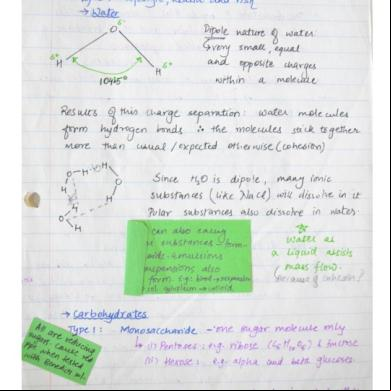 → Water
δ-
O
δ+
H
104.5°
δ+
H
Dipole nature of water
↳ very small, equal
and opposite charges
within a molecule
Results of this charge separation: water molecules
form hydrogen bonds ∴ the molecules stick together
more than usual / expected otherwise (cohesion)
Since H₂O is dipole, many ionic
substances (like NaCl) will dissolve in it
Polar substances also dissolve in water.
can also easily
substances
form
emulsions
also
form e.g.: blood →
colloid
Water as
a liquid assists
mass flow.
(because of cohesion)
→ Carbohydrates
Type 1: Monosaccharide - one sugar molecule only
↳ (i) Pentoses: e.g. ribose & fructose
(ii) Hexose: e.g. alpha and beta glucoses
All are reducing
sugars. Cause red
ppt when tested
with Benedict sol.